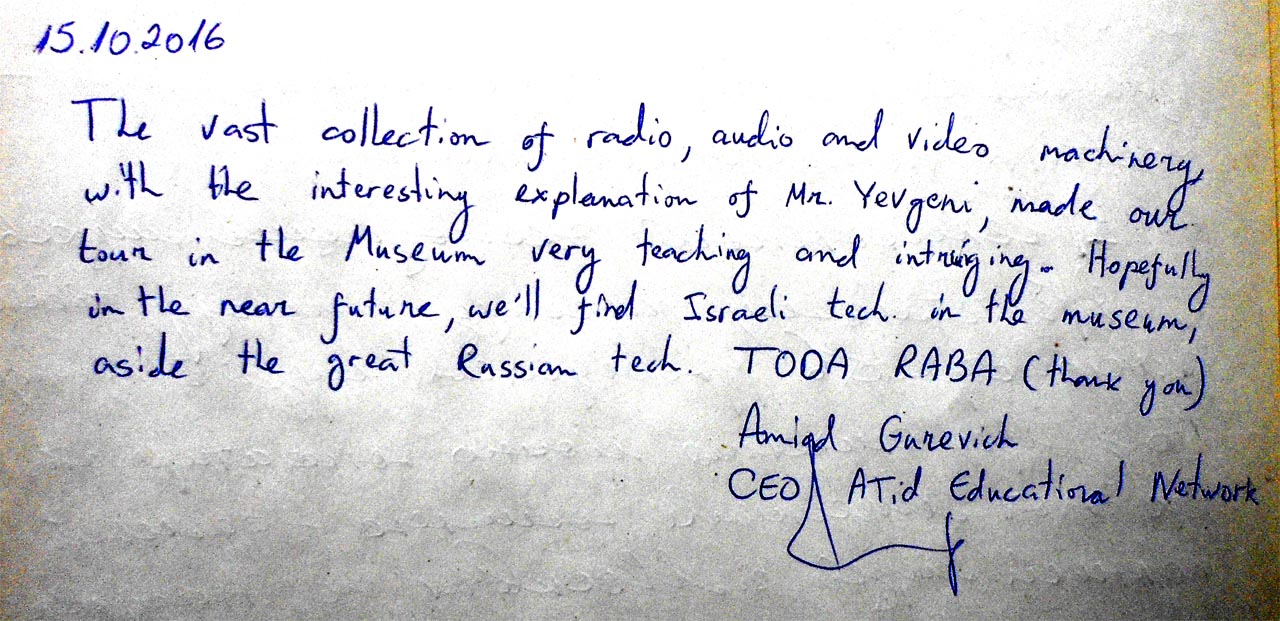 15.10.2016
The vast collection of radio, audio and video machinery,
with the interesting explanation of Mr. Yevgeni, made our
tour in the Museum very teaching and intruiging. Hopefully
in the near future, we'll find Israeli tech. in the museum,
aside the great Russian tech. TODA RABA (thank you)
Amiad Gurevich
CEO ATid Educational Network